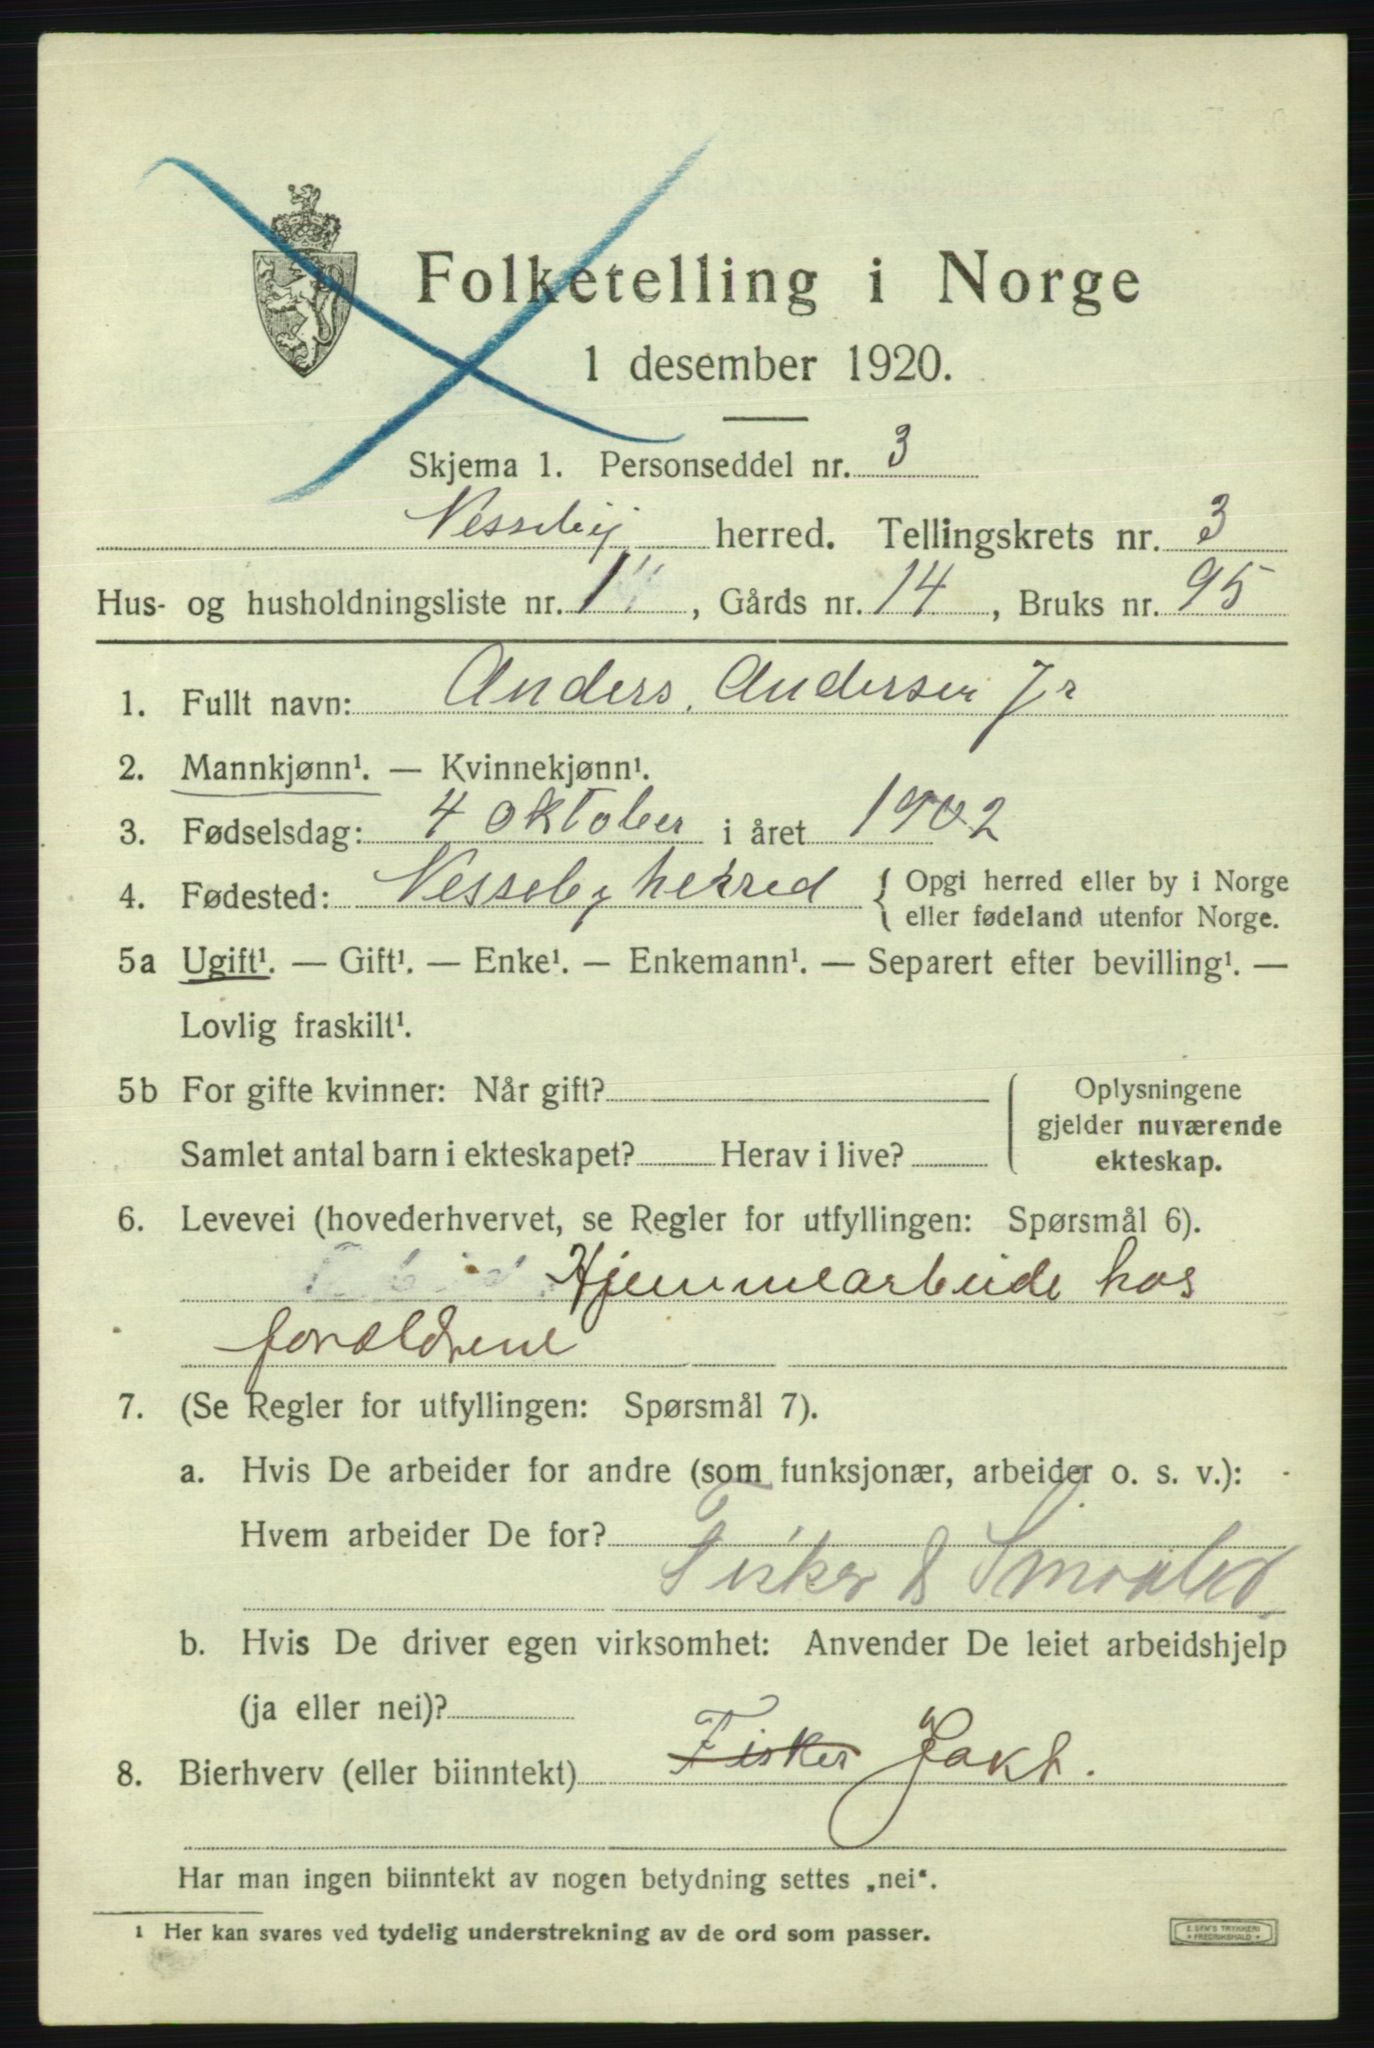 Folketelling i Norge
1 desember 1920.
Skjema 1. Personseddel nr. 3
Nesseby herred. Tellingskrets nr. 3
Hus- og husholdningsliste nr. , Gårds nr. 14, Bruks nr. 95
1. Fullt navn: Anders Andersen Jr
2. Mannkjønn¹. — Kvinnekjønn¹.
3. Fødselsdag: 4 oktober i året 1902
4. Fødested: Nesseby herred { Opgi herred eller by i Norge
eller fødeland utenfor Norge.
5a Ugift¹. — Gift¹. — Enke¹. — Enkemann¹. — Separert efter bevilling¹. —
Lovlig fraskilt¹.
5b For gifte kvinner: Når gift?
Samlet antal barn i ekteskapet? Herav i live?
Oplysningene
gjelder nuværende
ekteskap.
6. Levevei (hovederhvervet, se Regler for utfyllingen: Spørsmål 6).
Hjemmearbeide hos
forældrene
7. (Se Regler for utfyllingen: Spørsmål 7).
a. Hvis De arbeider for andre (som funksjonær, arbeider o. s. v.):
Hvem arbeider De for?
Fisker &
b. Hvis De driver egen virksomhet: Anvender De leiet arbeidshjelp
(ja eller nei)?
8. Bierhverv (eller biinntekt) Fisker Jakt.
Har man ingen biinntekt av nogen betydning settes „nei“.
¹ Her kan svares ved tydelig understrekning av de ord som passer.
E. SEM'S TRYKKERI
FREDRIKSHALD